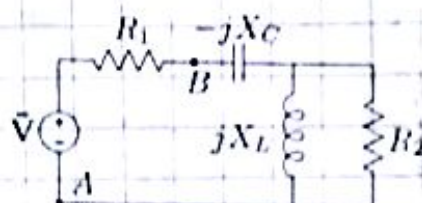 R₁ -jX_C
B
V̄ jX_L R₂
A